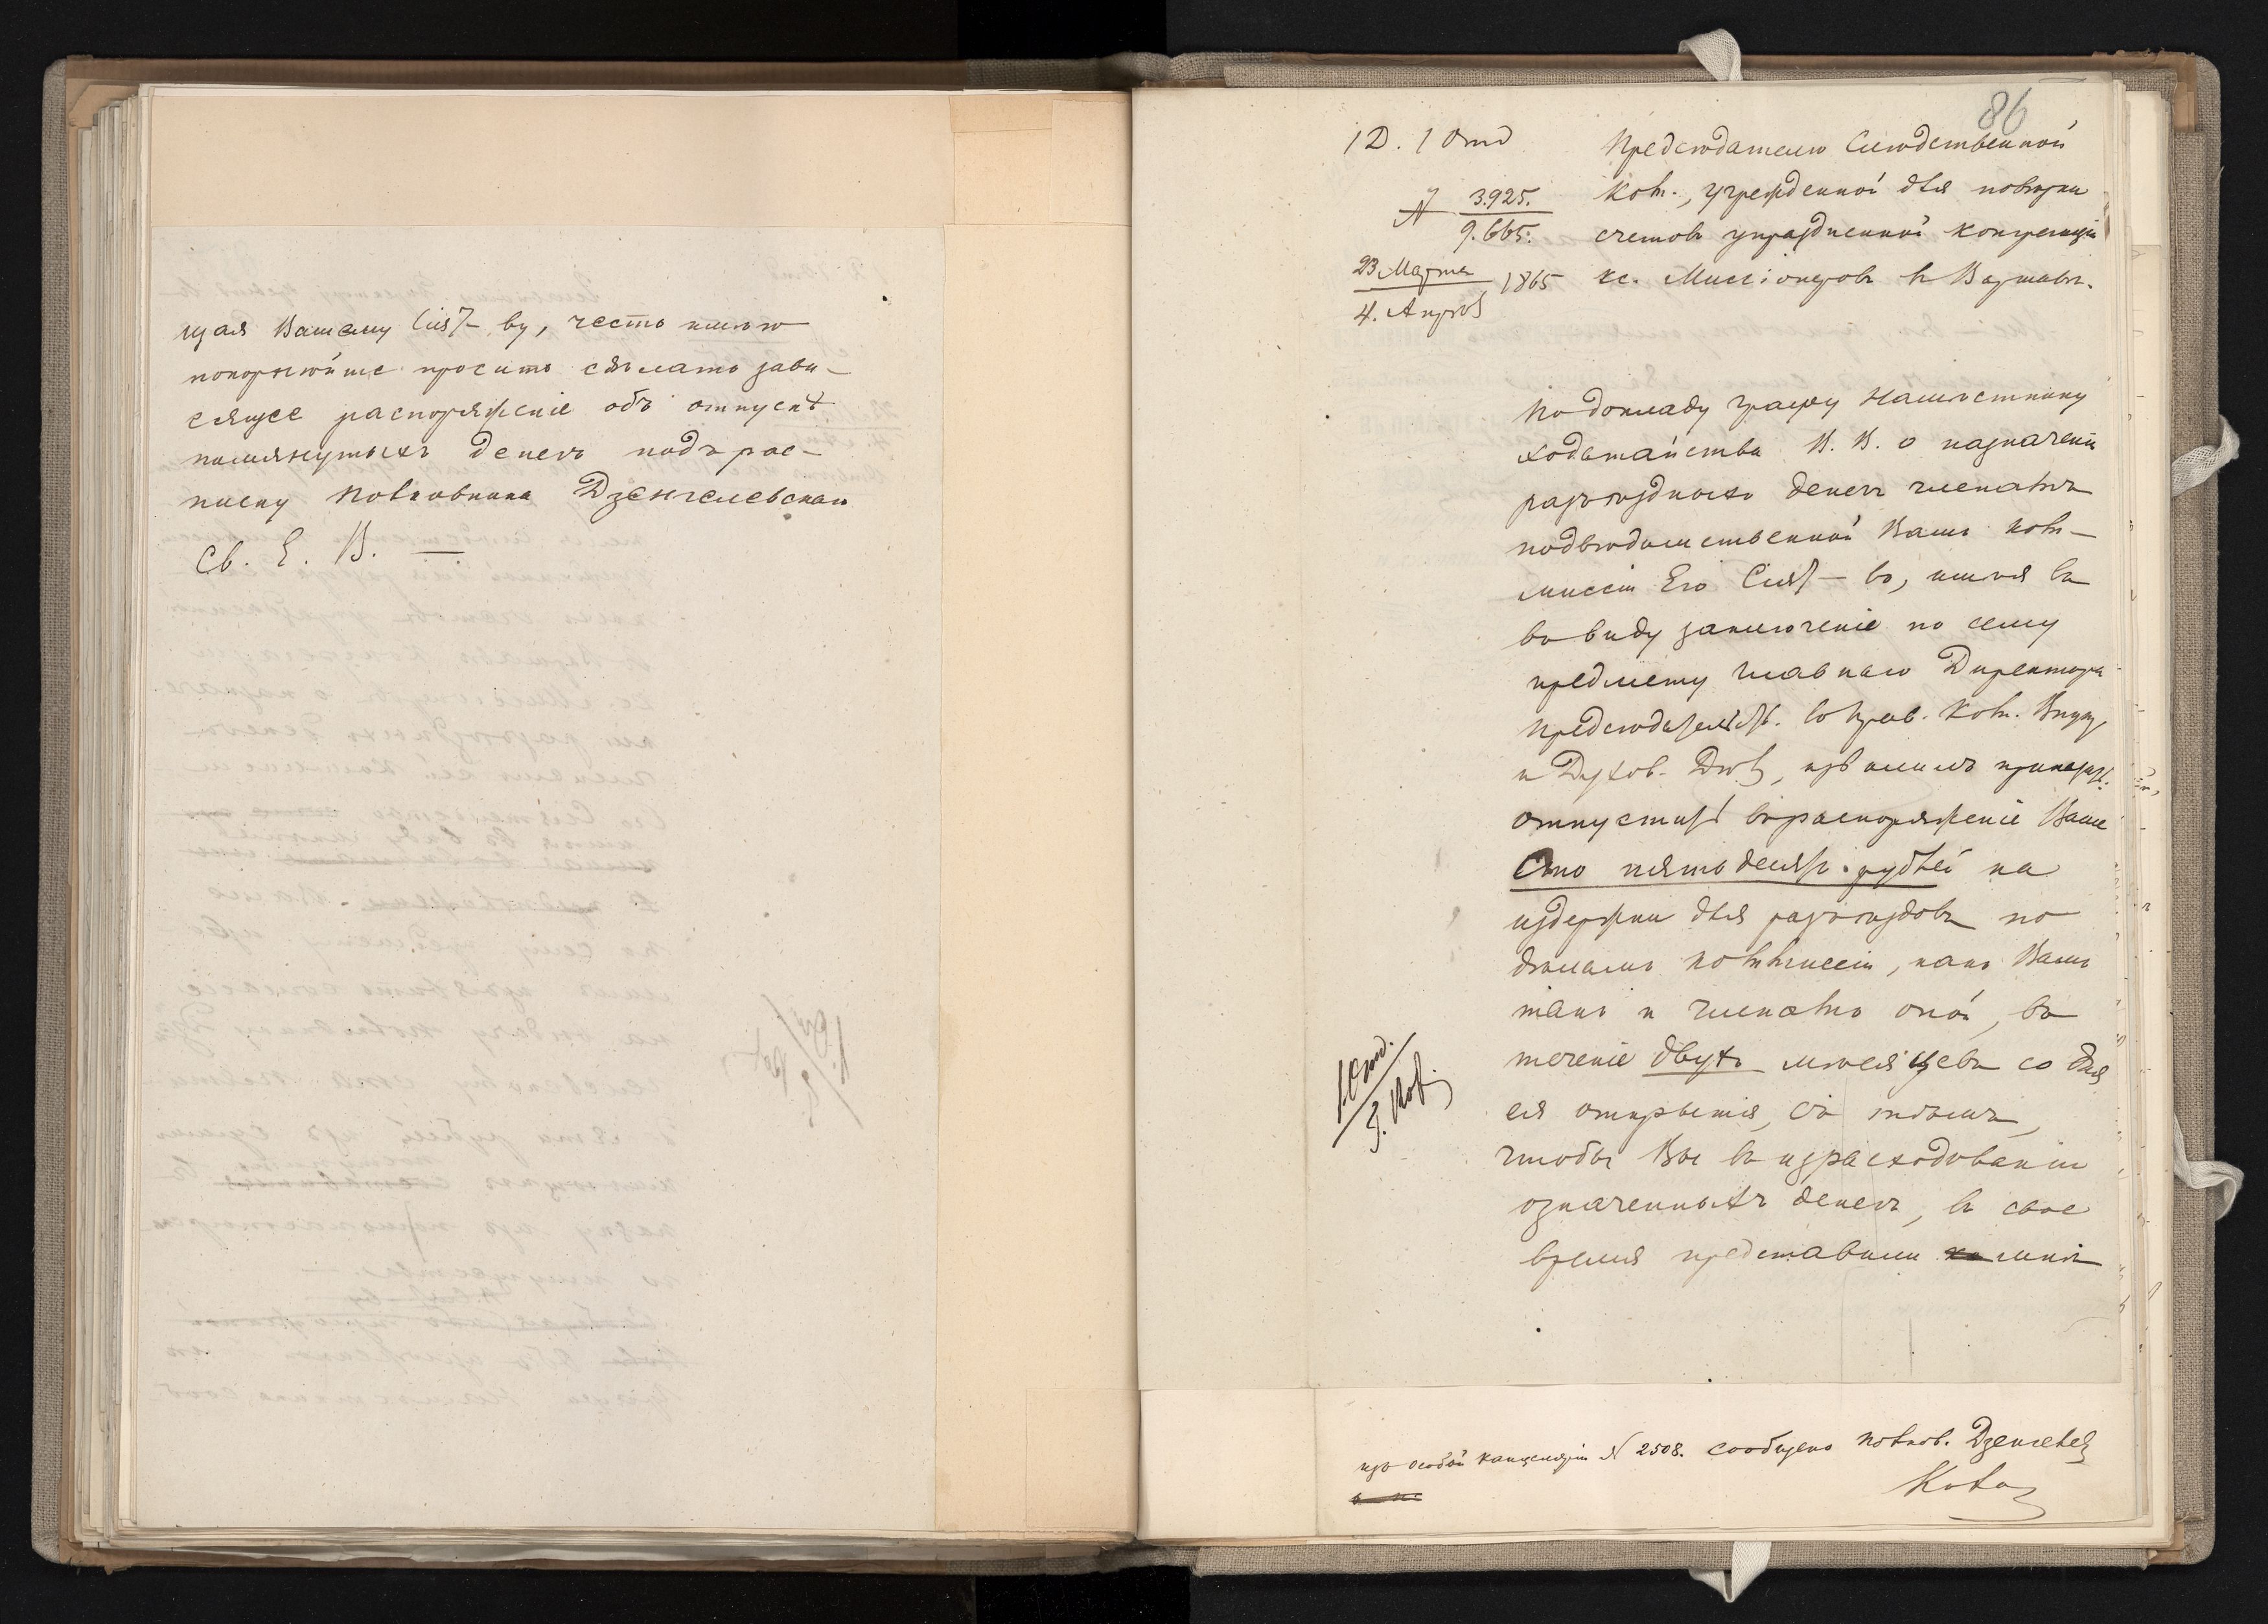 щая Вашему Сія-ву, честь имѣю
покорнѣйше просить сдѣлать зави-
сящее распоряженіе объ отпускѣ
помянутыхъ денегъ подъ рос-
писку Полковника Дзенгелевскаго
Св. Е. В. —
86
1 Д. 1 Отд
№ 3.925.
9.665.
23 Марта
4. Апрѣ 1865
Предсѣдателю Слѣдственной
Ком., учрежденной для повѣрки
счетовъ упраздненной конгрегаціи
кс. Миссіонеровъ въ Варшавѣ.
По докладу графу Намѣстнику
ходатайства В. В. о назначеніи
разъѣздныхъ денегъ членамъ
подвѣдомственной Вамъ ком-
миссіи Его Сія-во, имѣя въ
въ виду заключеніе по сему
предмету главнаго Директора
Предсѣдат. въ Прав. Ком. Внутр
и Духов. Дѣ, изволилъ приказать:
отпустить въ распоряженіе Ваше
Сто пятьдесятъ рублей на
издержки для разъѣздовъ по
дѣламъ коммиссіи, какъ Вамъ
такъ и членамъ оной, въ
теченіе двухъ мѣсяцевъ со дня
ея открытія, съ тѣмъ,
чтобы Вы въ израсходованіи
означенныхъ денегъ, въ свое
время представили ко мнѣ
1. Отд.
3. Апр.
изъ особой канцеляріи № 2508. сообщено Полков. Дзенгелев